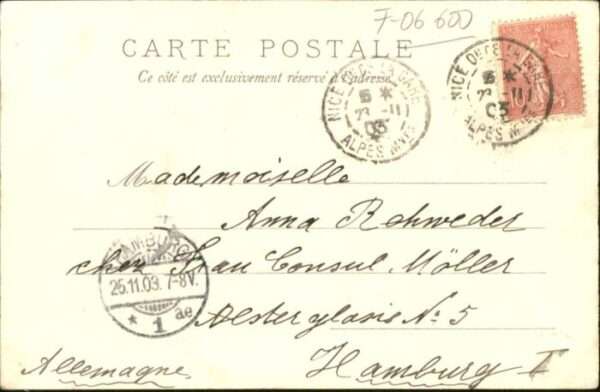 7-06 600
CARTE POSTALE
Ce côté est exclusivement réservé à l'adresse
NICE
GARE
5 *
23 -11
03
ALPES MMES
NICE
5 *
23 -11
03
ALPES MMES
10
Mademoiselle
Anna Rohweder
chez Frau Consul Möller
HAMBURG
25.11.03. 7-8V.
* 1 ae
Alsterglacis No 5
Hamburg I
Allemagne